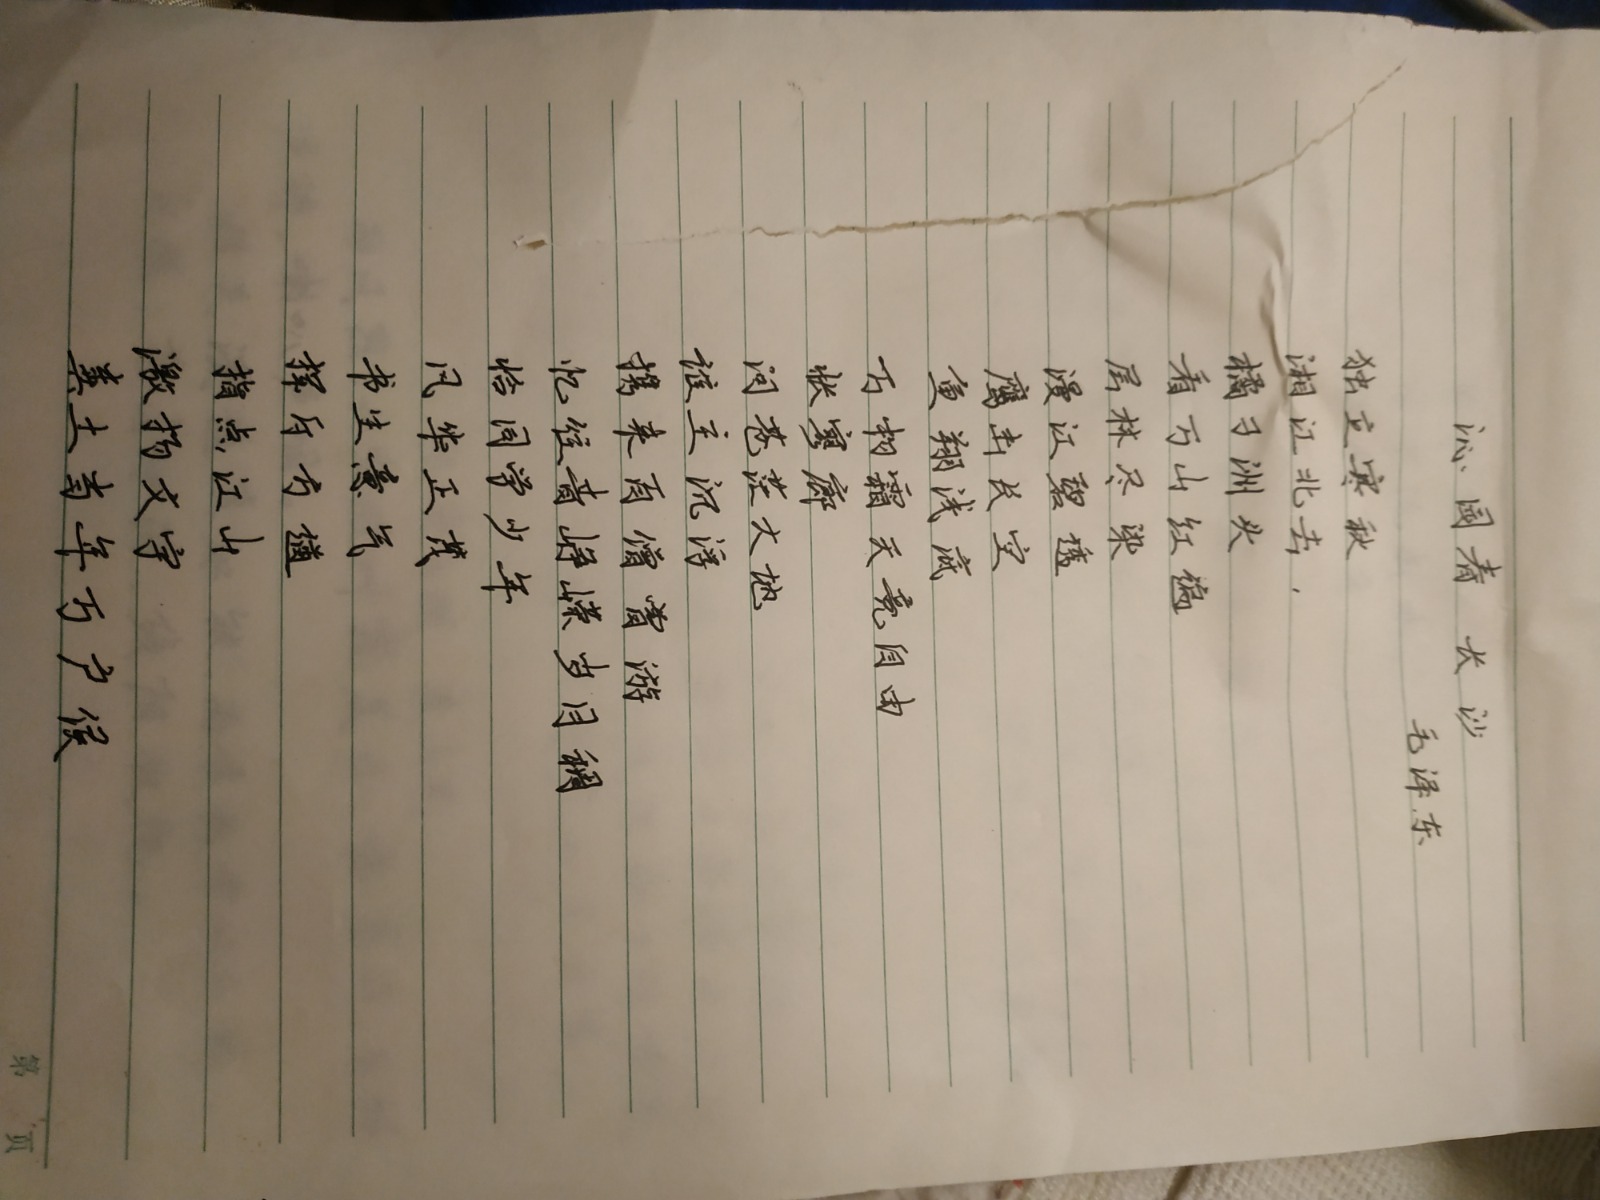 沁园春 长沙
毛泽东
独立寒秋
湘江北去,
橘子洲头
看万山红遍
层林尽染
漫江碧透
鹰击长空
鱼翔浅底
万物霜天竞自由
怅寥廓
问苍茫大地
谁主沉浮
携来百僧曾游
忆往昔峥嵘岁月稠
恰同学少年
风华正茂
书生意气
挥斥方遒
指点江山
激扬文字
粪土当年万户侯
第 页